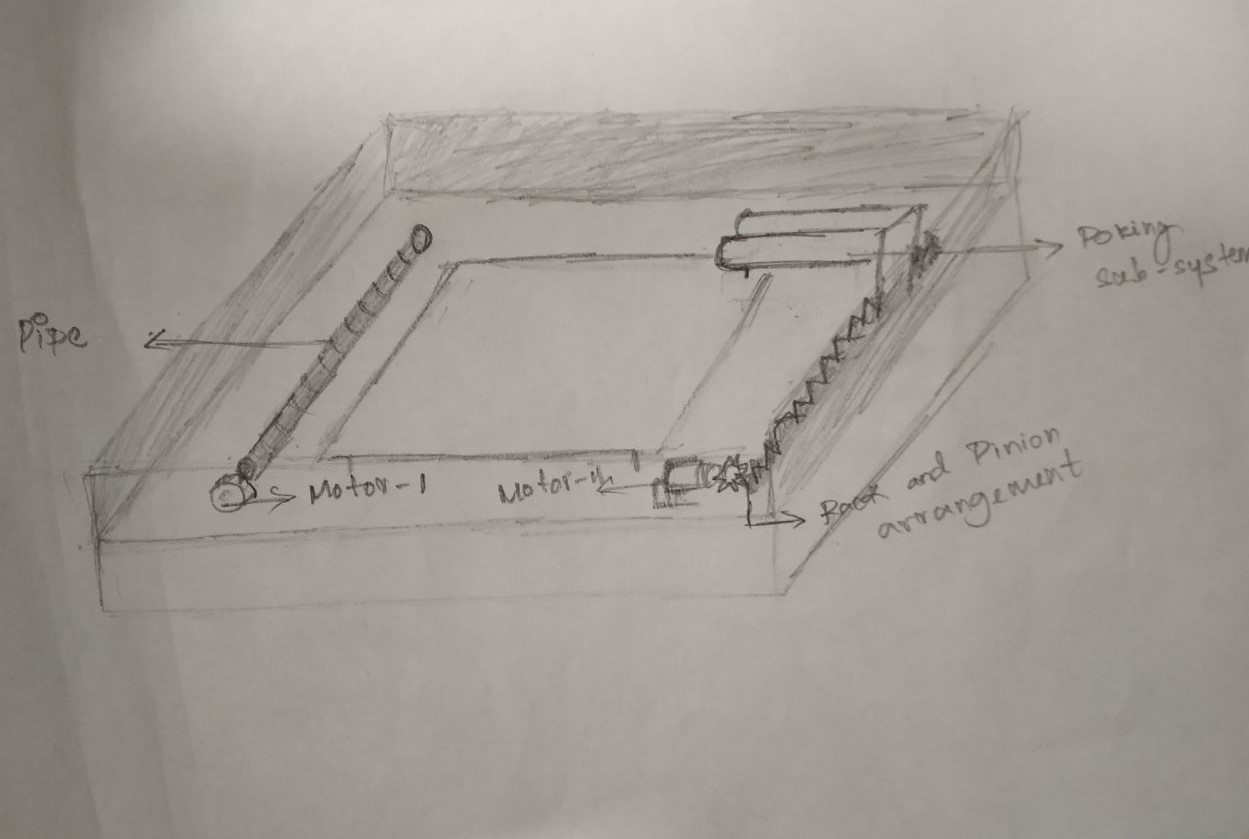 Poking
sub-system
Pipe
Motor-1
Motor-11
Rack and Pinion
arrangement